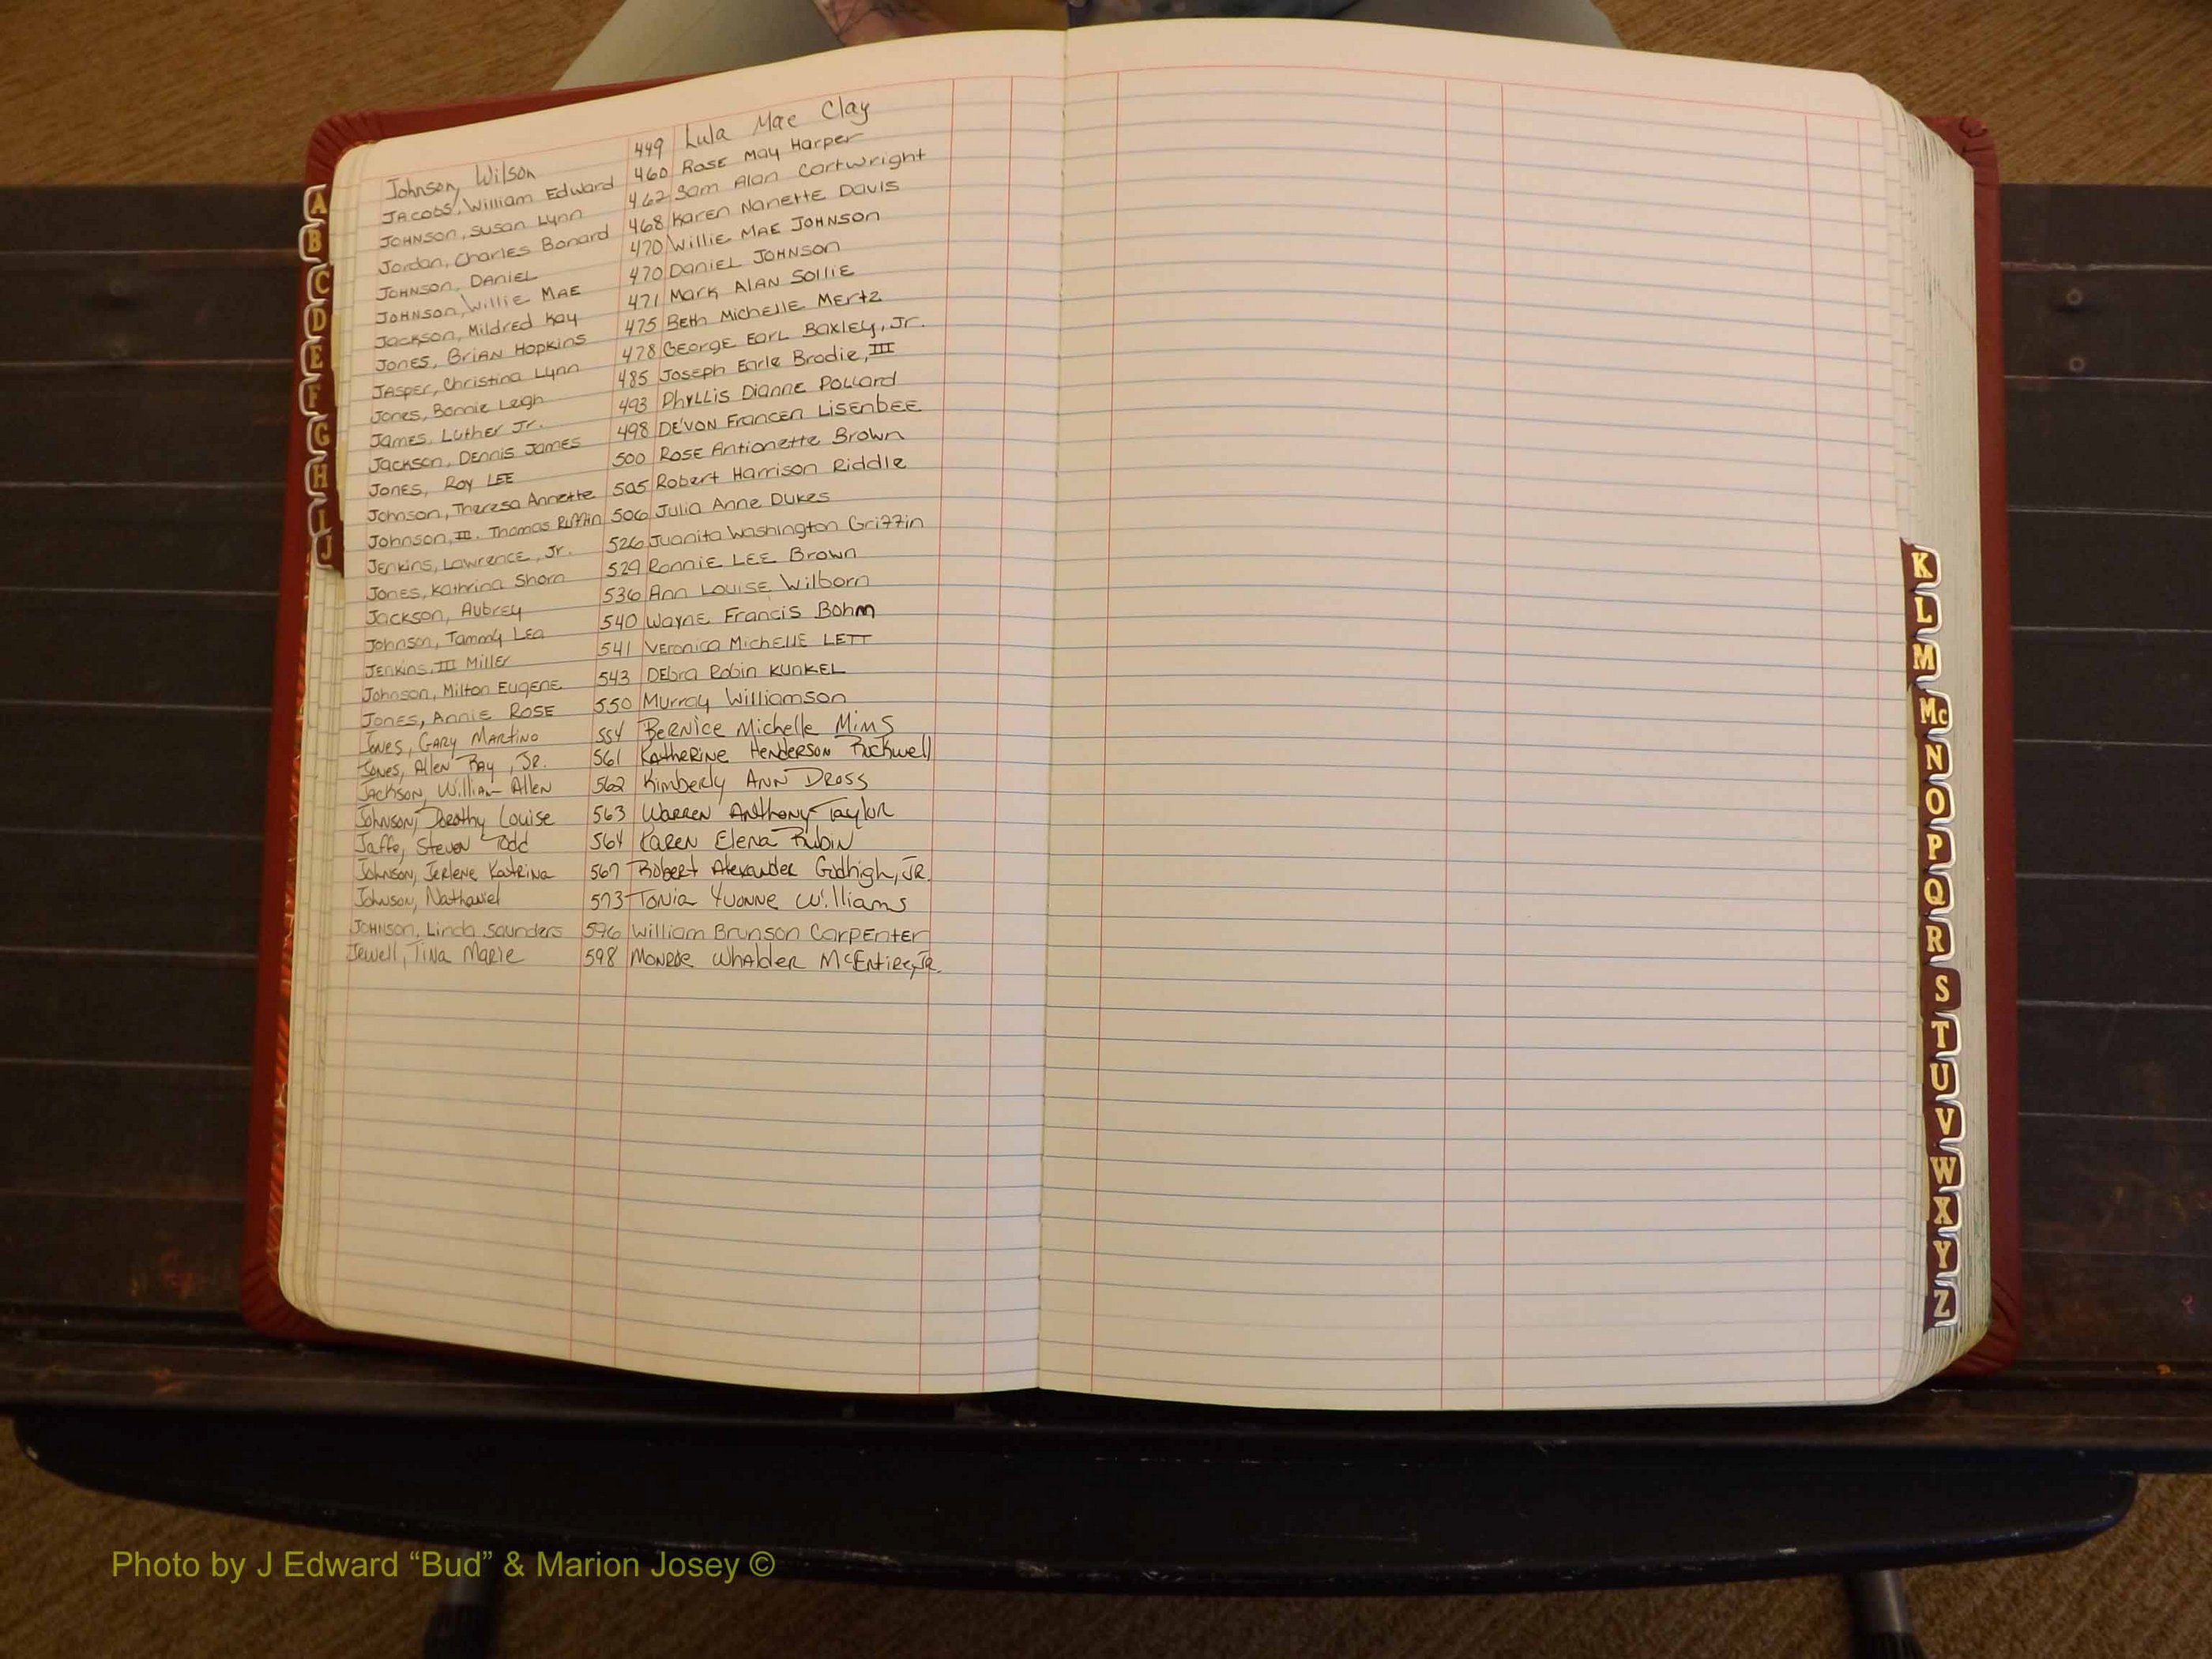 Johnson, Wilson 449 Lula Mae Clay
Jacobs, William Edward 460 Rose May Harper
Johnson, Susan Lynn 462 Sam Alan Cartwright
Jordan, Charles Bonard 468 Karen Nanette Davis
Johnson, Daniel 470 Willie Mae Johnson
Johnson, Willie Mae 470 Daniel Johnson
Jackson, Mildred Kay 471 Mark Alan Sollie
Jones, Brian Hopkins 475 Beth Michelle Mertz
Jasper, Christina Lynn 478 George Earl Baxley, Jr.
Jones, Bonnie Leigh 485 Joseph Earle Brodie, III
James, Luther Jr. 493 Phyllis Dianne Pollard
Jackson, Dennis James 498 De'Von Francen Lisenbee
Jones, Roy Lee 500 Rose Antionette Brown
Johnson, Theresa Annette 505 Robert Harrison Riddle
Johnson, III. Thomas Ruffin 506 Julia Anne Dukes
Jenkins, Lawrence, Jr. 526 Juanita Washington Griffin
Jones, Kathrina Shorn 529 Ronnie Lee Brown
Jackson, Aubrey 536 Ann Louise Wilborn
Johnson, Tammy Lea 540 Wayne Francis Bohm
Jenkins, III Miller 541 Veronica Michelle Lett
Johnson, Milton Eugene 543 Debra Robin Kunkel
Jones, Annie Rose 550 Murray Williamson
Jones, Gary Martino 554 Bernice Michelle Mims
Jones, Allen Ray, Jr. 561 Katherine Henderson Ruckwell
Jackson, William Allen 562 Kimberly Ann Dross
Johnson, Dorothy Louise 563 Warren Anthony Taylor
Jaffe, Steven Todd 564 Karen Elena Rubin
Johnson, Jerlene Katrina 567 Robert Alexander Godhigh, Jr.
Johnson, Nathaniel 573 Tonia Yvonne Williams
Johnson, Linda Saunders 596 William Brunson Carpenter
Jewell, Tina Marie 598 Monroe Whalder McEntire, Jr.
A
B
C
D
E
F
G
H
I
J
K
L
M
Mc
N
O
P
Q
R
S
T
U
V
W
X
Y
Z
Photo by J Edward “Bud” & Marion Josey ©